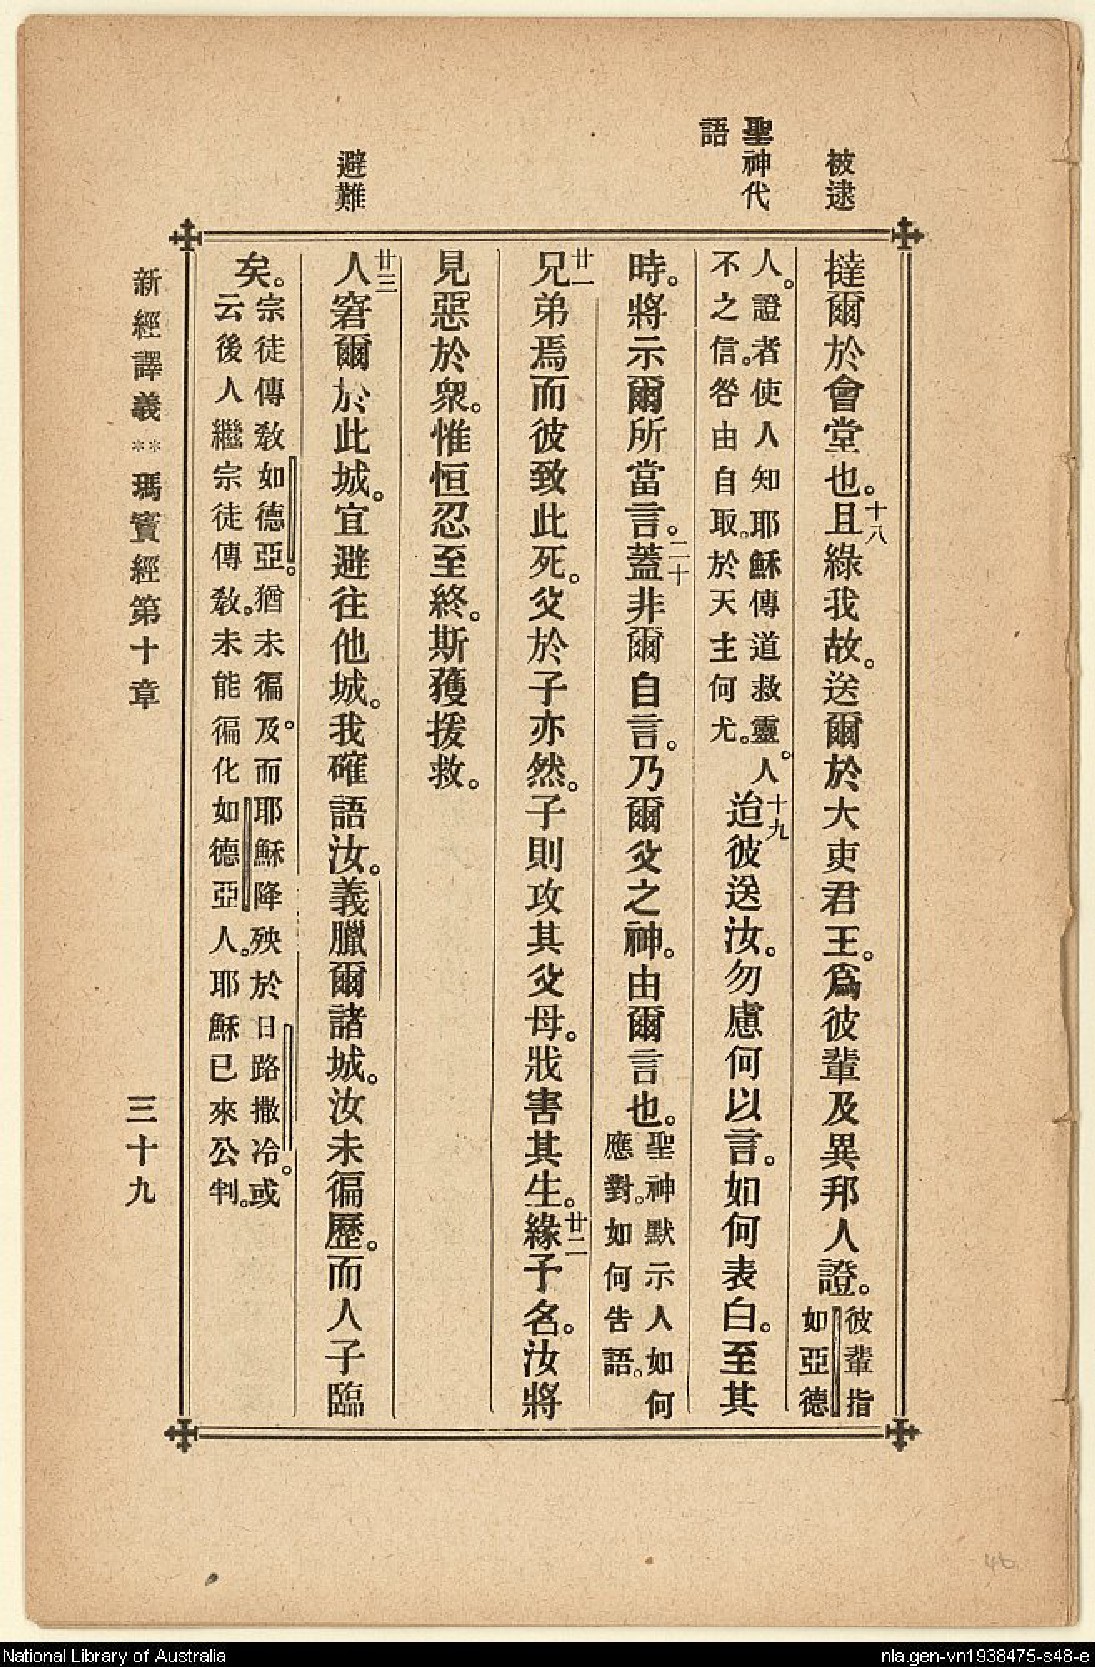 被逮
聖神代
語
避難
撻爾於會堂也。十八且緣我故。送爾於大吏君王。爲彼輩及異邦人證。彼輩指
如亞德
人。證者使人知耶穌傳道救靈。人
不之信。咎由自取。於天主何尤。
十九迨彼送汝。勿慮何以言。如何表白。至其
時。將示爾所當言。二十蓋非爾自言。乃爾父之神。由爾言也。聖神默示人如何
應對。如何告語。
廿一兄弟焉而彼致此死。父於子亦然。子則攻其父母。戕害其生。廿二緣予名。汝將
見惡於衆。惟恒忍至終。斯獲援救。
廿三人窘爾於此城。宜避往他城。我確語汝。義臘爾諸城。汝未徧歷。而人子臨
矣。宗徒傳敎如德亞。猶未徧及。而耶穌降殃於日路撒冷。或
云後人繼宗徒傳敎。未能徧化如德亞人。耶穌已來公判。
新經譯義**瑪竇經第十章
三十九
46
National Library of Australia
nla.gen-vn1938475-s48-e